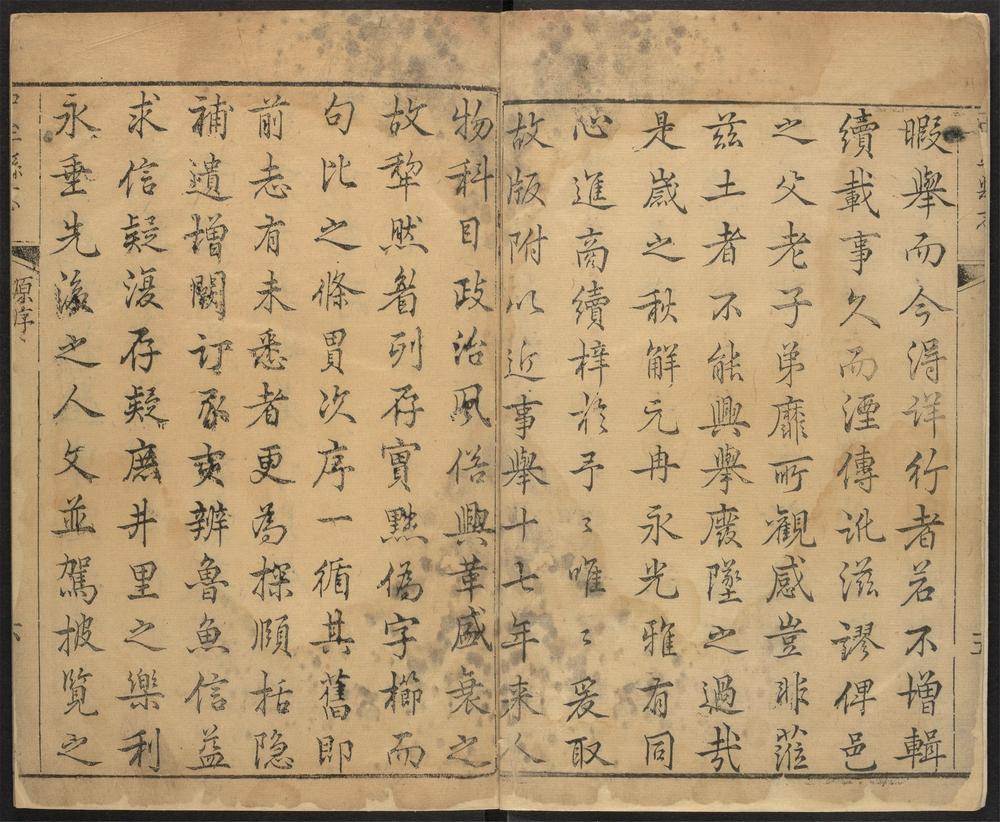 暇舉而今得详行者若不增輯
續載事久而湮傳訛滋謬俾邑
之父老子弟靡所觀感豈非蒞
兹土者不能興舉廢墜之過哉
是嵗之秋解元冉永光雅有同
心進商續梓於予予唯唯爰取
故版附以近事舉十七年来人
物科目政治風俗興革盛衰之
故犂然着列存實黜偽字櫛而
句比之條貫次序一循其舊即
前志有未悉者更為探頥括隐
補遺增闕訂豕亥辨魯魚信益
求信疑復存疑庶井里之樂利
永垂先後之人文並駕披覧之
原序